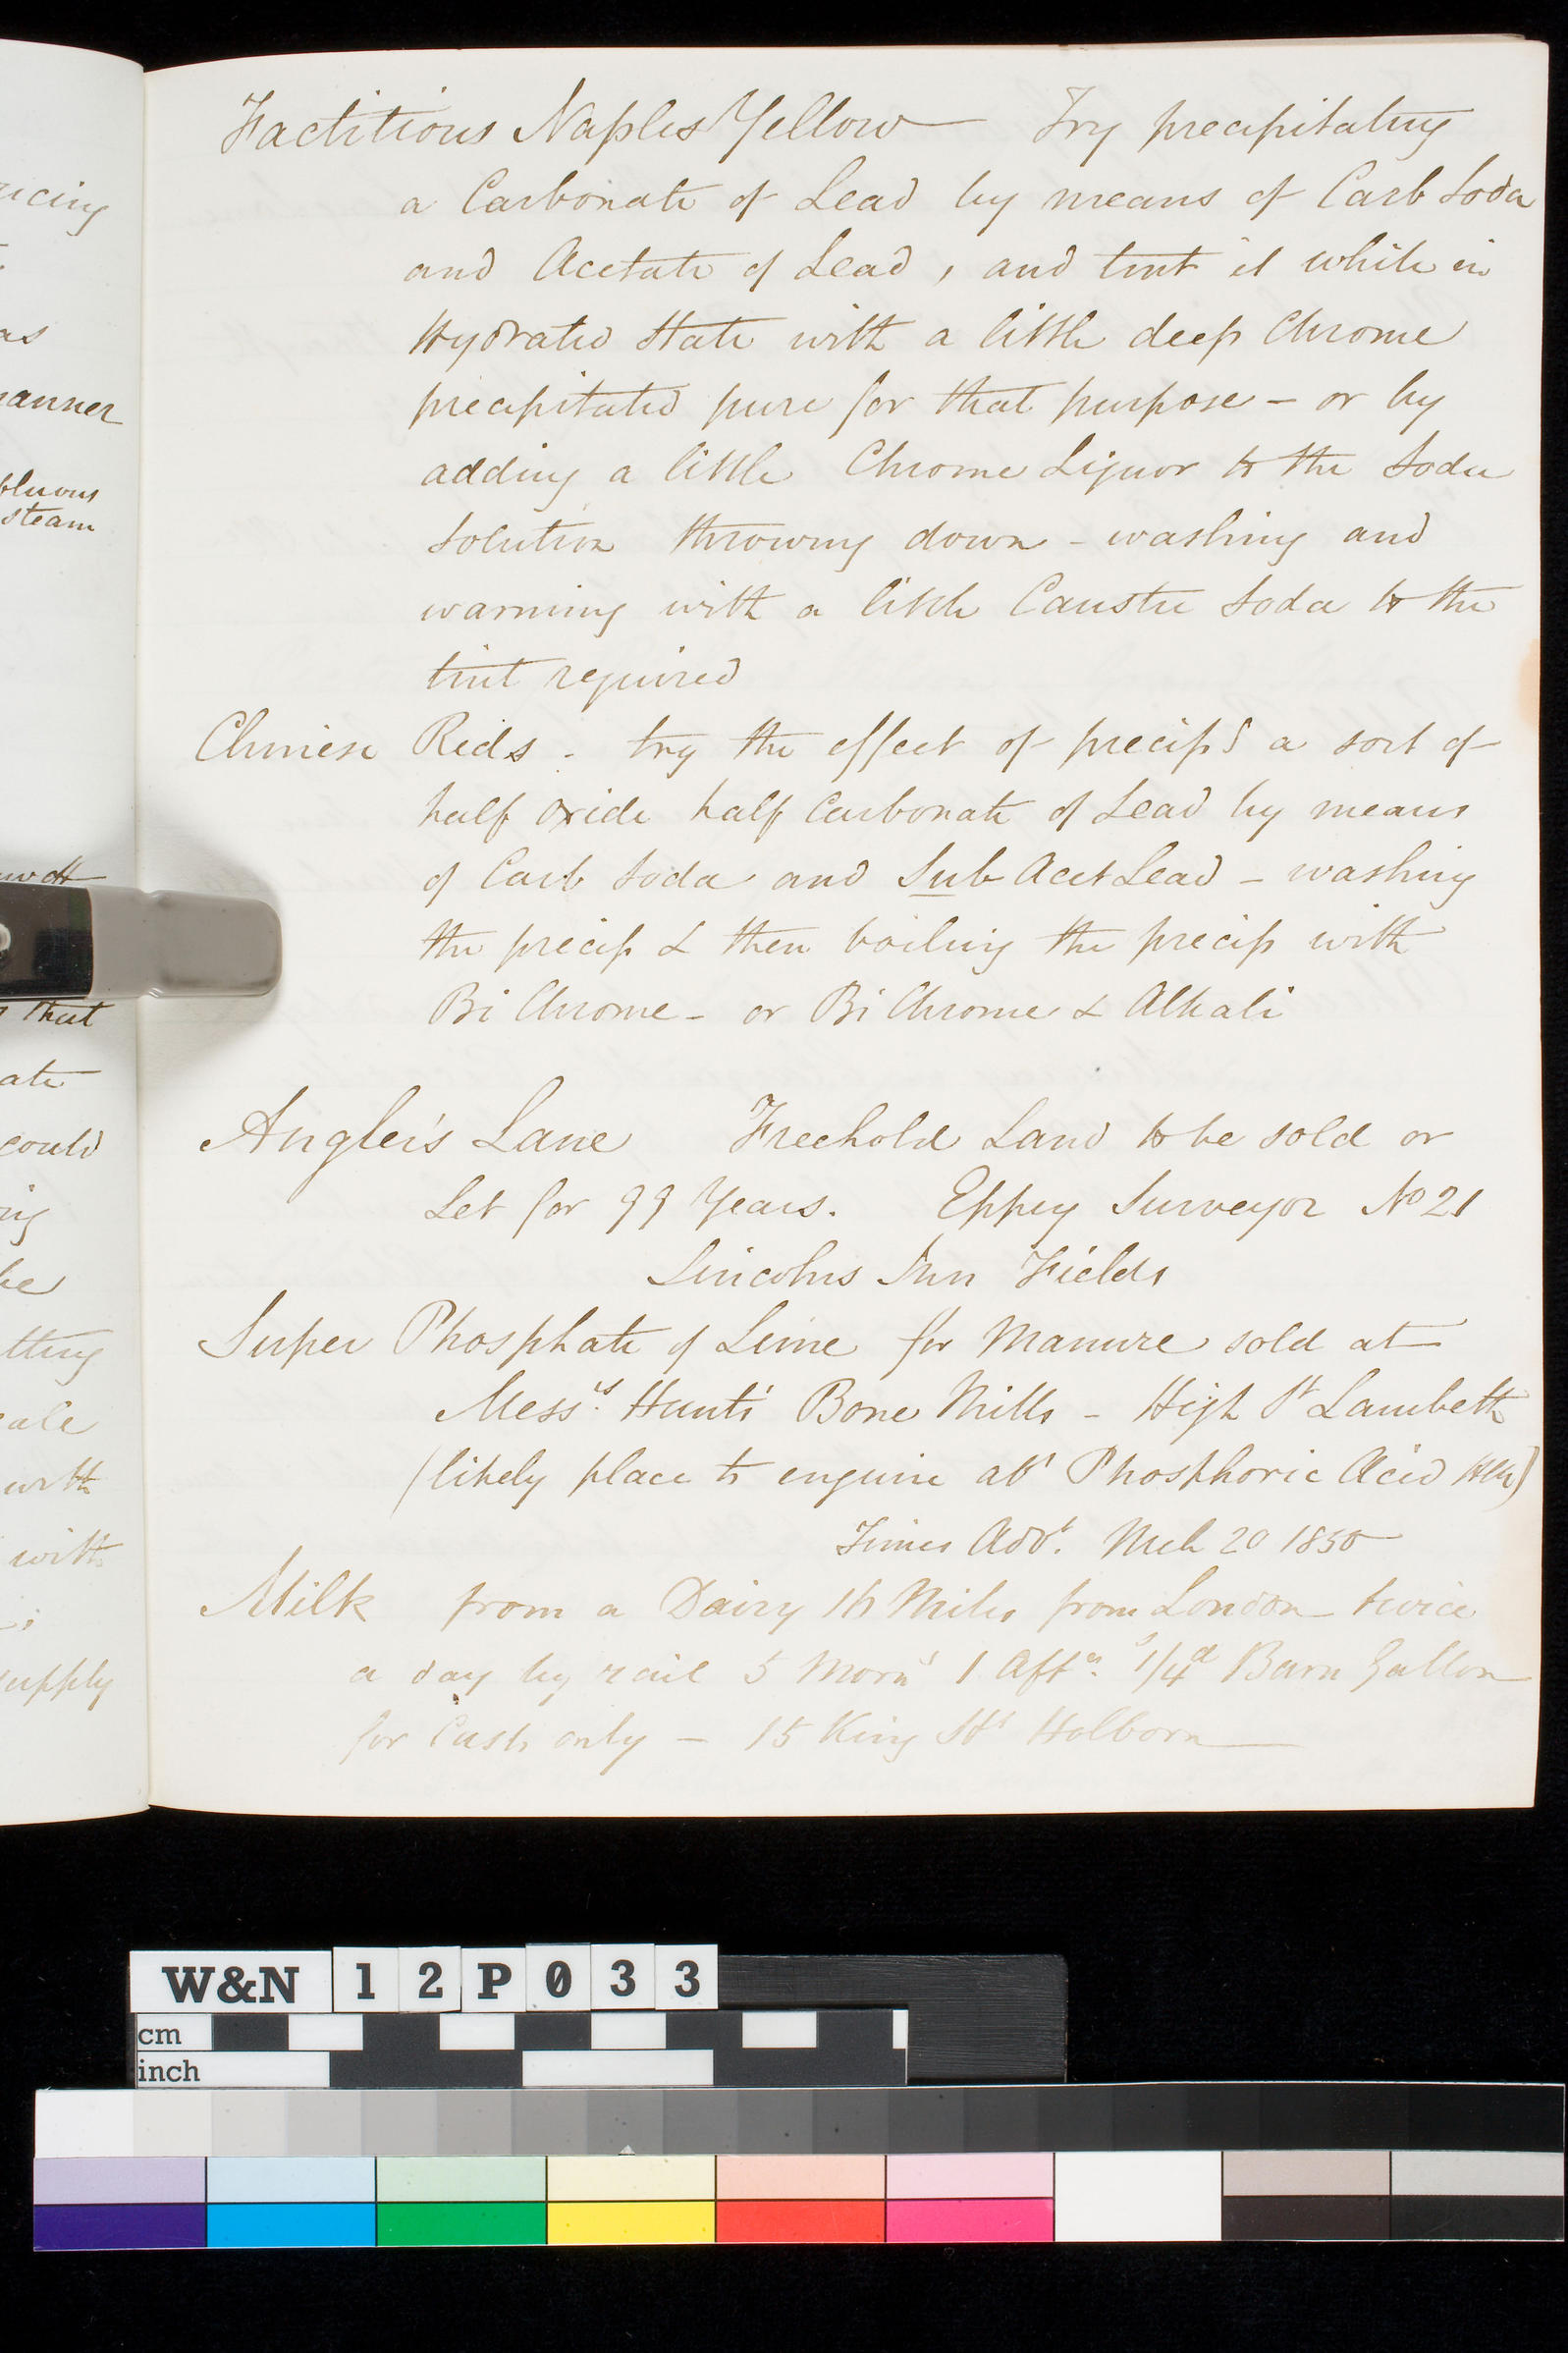 ricing
as
manner
steam
that
ate
could
ing
be
tting
cale
with
with
supply
Factitious Naples Yellow — Try precipitating
a Carbonate of Lead by means of Carb Soda
and Acetate of Lead, and tint it while in
Hydrated State with a little deep Chrome
precipitated pure for that purpose – or by
adding a little Chrome Liquor to the Soda
Solution throwing down – washing and
warming with a little Caustic Soda to the
tint required
Chinese Reds – try the effect of precipg a sort of
half oxide half Carbonate of Lead by means
of Carb Soda and Sub Acet Lead – washing
the precip & then boiling the precip with
Bi Chrome – or Bi Chrome & Alkali
Angler's Lane Freehold Land to be sold or
Let for 99 Years. Eppey Surveyor No 21
Lincolns Inn Fields
Super Phosphate of Lime for Manure sold at
Messrs. Hunts Bone Mills – High St Lambeth
(likely place to enquire abt Phosphoric Acid HCN)
Times Advt. Mch 20 1850
Milk from a Dairy 16 Miles from London twice
a day by rail 5 Morng 1 Aftn. 1s/4d Barn Gallon
for Cash only – 15 King Stt Holborn —
W&N 12P033
cm
inch